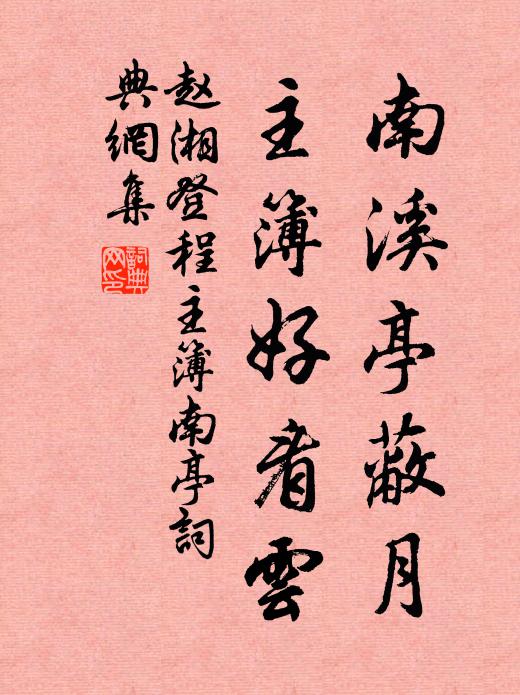 南溪亭蔽月
主簿好看雲
赵湘登程主簿南亭詞
典網集
詞典
网印